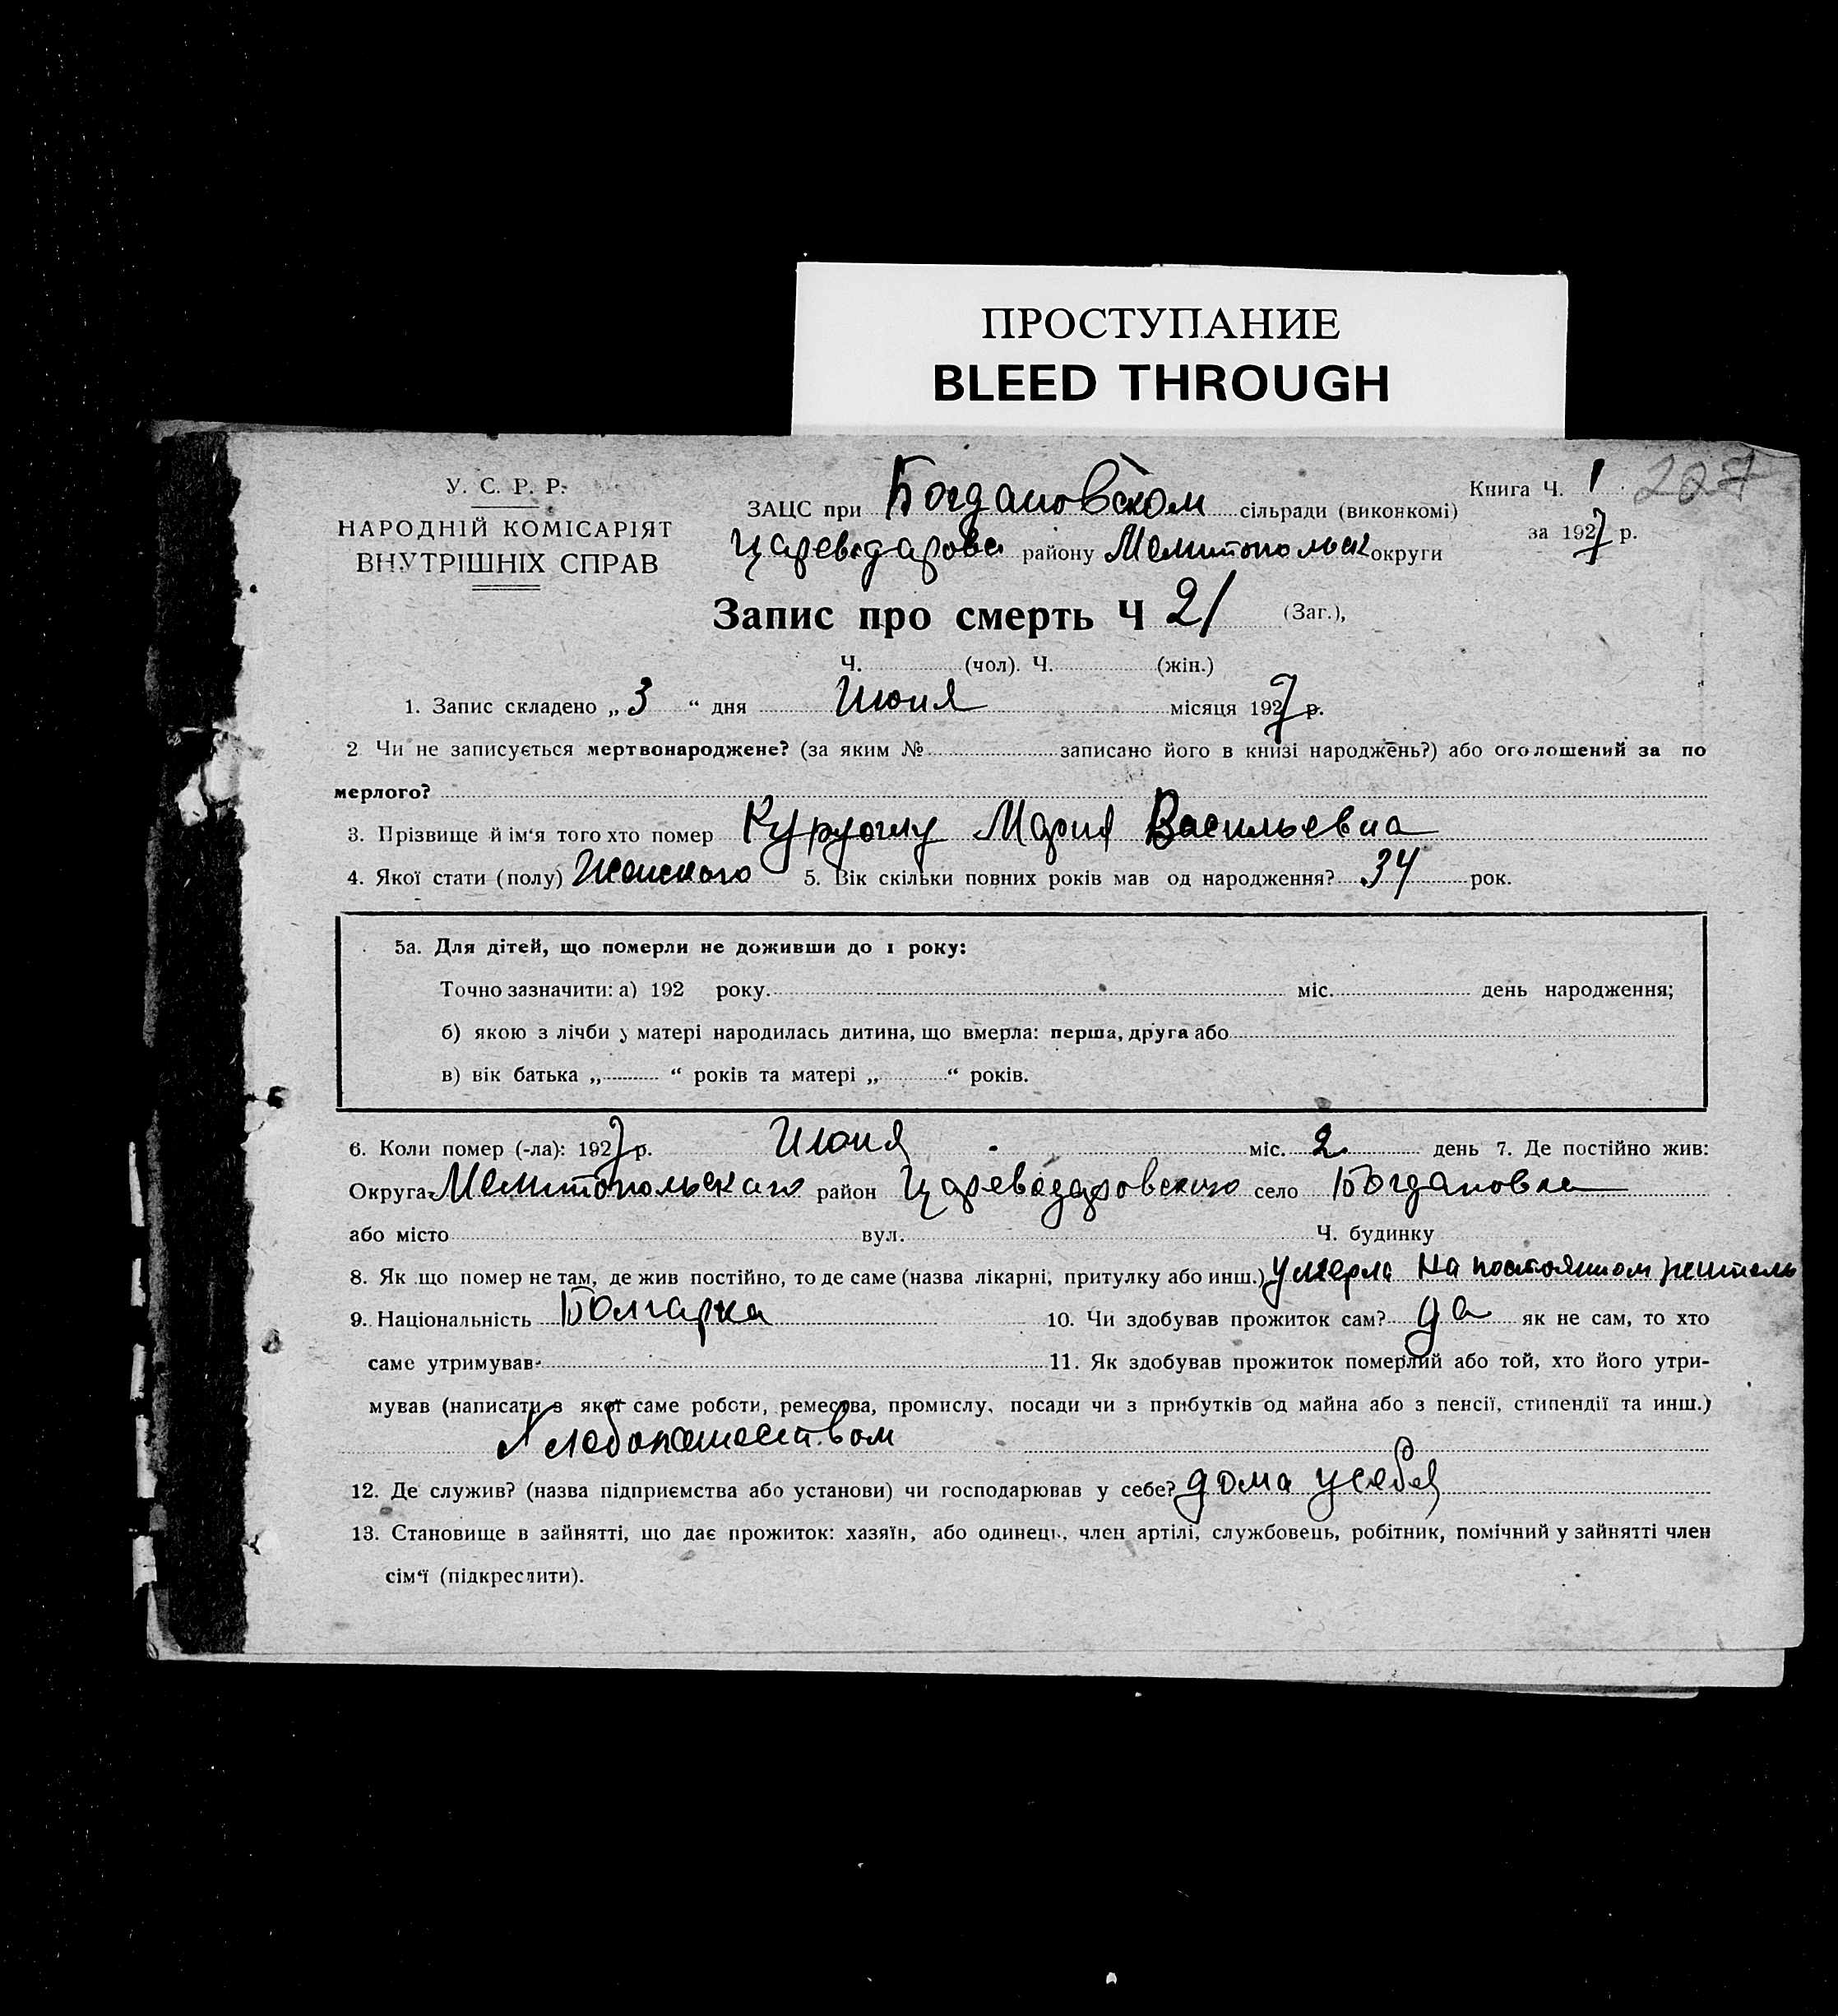 ПРОСТУПАНИЕ
BLEED THROUGH
207
У. С. Р. Р.
НАРОДНІЙ КОМІСАРІЯТ
ВНУТРІШНІХ СПРАВ
ЗАЦС при Богдановском сільради (виконкомі)
Цареводарова району Мелитопольск округи
Книга Ч. 1
за 1927 р.
Запис про смерть Ч 21 (Заг.),
Ч. (чол). Ч. (жін.)
1. Запис складено „ 3 “ дня Июня місяця 1927 р.
2 Чи не записується мертвонароджене? (за яким № записано його в книзі народжень?) або оголошений за по
мерлого?
3. Прізвище й ім‘я того хто помер Куруоглу Мария Васильевна
4. Якої стати (полу) Женского 5. Вік скільки повних років мав од народження? 34 рок.
5а. Для дітей, що померли не доживши до 1 року:
Точно зазначити: а) 192 року. міс. день народження;
б) якою з лічби у матері народилась дитина, що вмерла: перша, друга або
в) вік батька „ “ років та матері „ “ років.
6. Коли помер (-ла): 1927 р. Июня міс. 2 день 7. Де постійно жив:
Округа Мелитопольского район Цареводаровского село Богдановка
або місто вул. Ч. будинку
8. Як що помер не там, де жив постійно, то де саме (назва лікарні, притулку або инш.) умерла на постоянном
9. Національність Болгарка 10. Чи здобував прожиток сам? да як не сам, то хто
саме утримував 11. Як здобував прожиток померлий або той, хто його утри-
мував (написати з якої саме роботи, ремесова, промислу, посади чи з прибутків од майна або з пенсії, стипендії та инш.)
Хлебопашеством
12. Де служив? (назва підприємства або установи) чи господарював у себе? дома у себя
13. Становище в зайнятті, що дає прожиток: хазяїн, або одинець, член артілі, службовець, робітник, помічний у зайнятті член
сім‘ї (підкреслити).